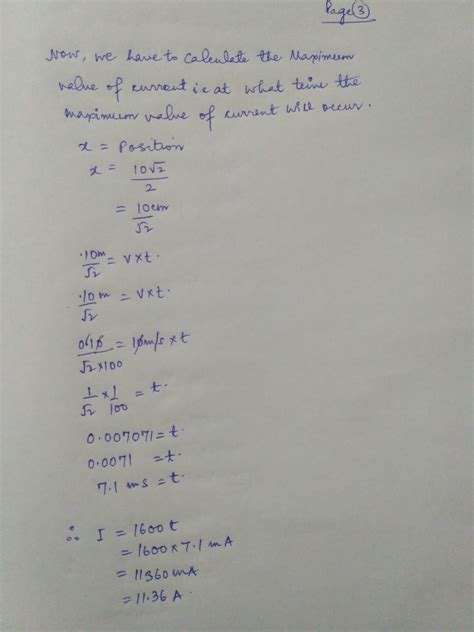 Page ③
Now, we have to calculate the Maximum
value of current i.e at what time the
maximum value of current will occur.
x = Position
x = 10√2 / 2
= 10cm / √2
.10m / √2 = v×t.
.10m / √2 = v×t.
/ √2×100 = 10m/s×t
1/√2 × 1/100 = t.
0.007071 = t.
0.0071 = t.
7.1 ms = t.
∴ I = 1600t
= 1600×7.1 mA
= 11360mA
= 11.36 A.